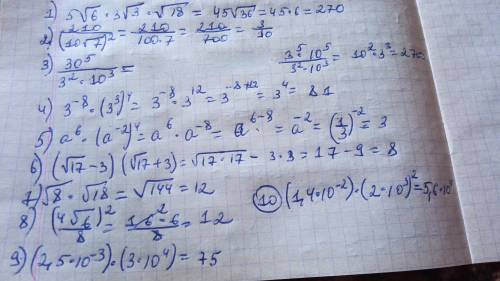 1) 5√6 · 3√3 · √18 = 45√36 = 45·6 = 270
2) 210/(10√7)² = 210/100·7 = 210/700 = 3/10
3) 30⁵/3²·10³ = 3⁵·10⁵/3²·10³ = 10²·3³ = 270
4) 3⁻⁸ · (3³)⁴ = 3⁻⁸ · 3¹² = 3⁻⁸⁺¹² = 3⁴ = 81
5) a⁶ · (a⁻²)⁴ = a⁶ · a⁻⁸ = a⁶⁻⁸ = a⁻² = (1/3)⁻² = 3
6) (√17 – 3) (√17 + 3) = √17·17 – 3·3 = 17 – 9 = 8
7) √8 · √18 = √144 = 12
8) (4√6)²/8 = 16·6/8 = 12
9) (2,5·10⁻³)·(3·10⁴) = 75
10) (1,4·10⁻²)·(2·10³)² = 5,6·10⁴